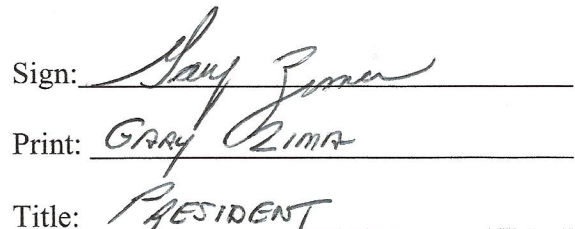 Sign: Gary Zima
Print: GARY ZIMA
Title: PRESIDENT